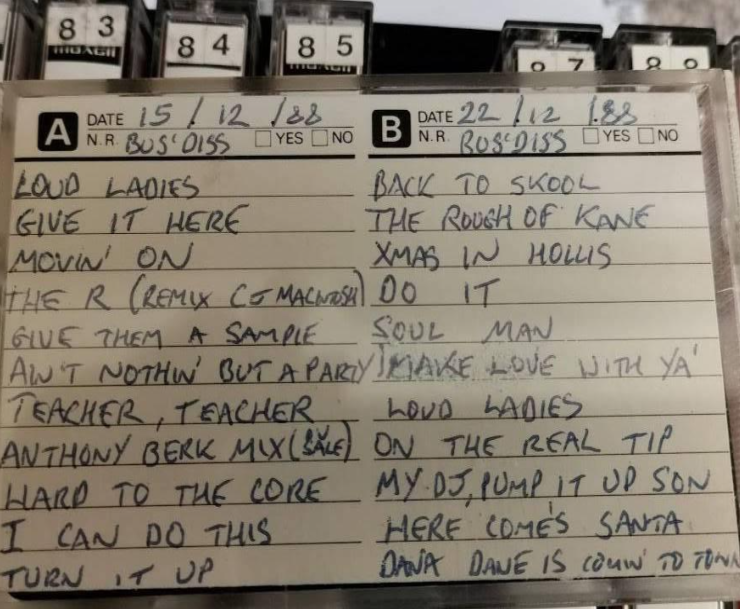 83 84 85 87 88
maxell
maxell
A DATE 15/12/88
N.R. BUS'DISS YES NO
LOUD LADIES
GIVE IT HERE
MOVIN' ON
THE R (REMIX CJ MACINTOSH)
GIVE THEM A SAMPLE
AIN'T NOTHIN' BUT A PARTY
TEACHER, TEACHER
ANTHONY BERK MIX (SALE)
HARD TO THE CORE
I CAN DO THIS
TURN IT UP
B DATE 22/12/88
N.R. BUS'DISS YES NO
BACK TO SKOOL
THE ROUGH OF KANE
XMAS IN HOLLIS
DO IT
SOUL MAN
MAKE LOVE WITH YA'
LOUD LADIES
ON THE REAL TIP
MY DJ, PUMP IT UP SON
HERE COME'S SANTA
DANA DANE IS COMIN' TO TOWN